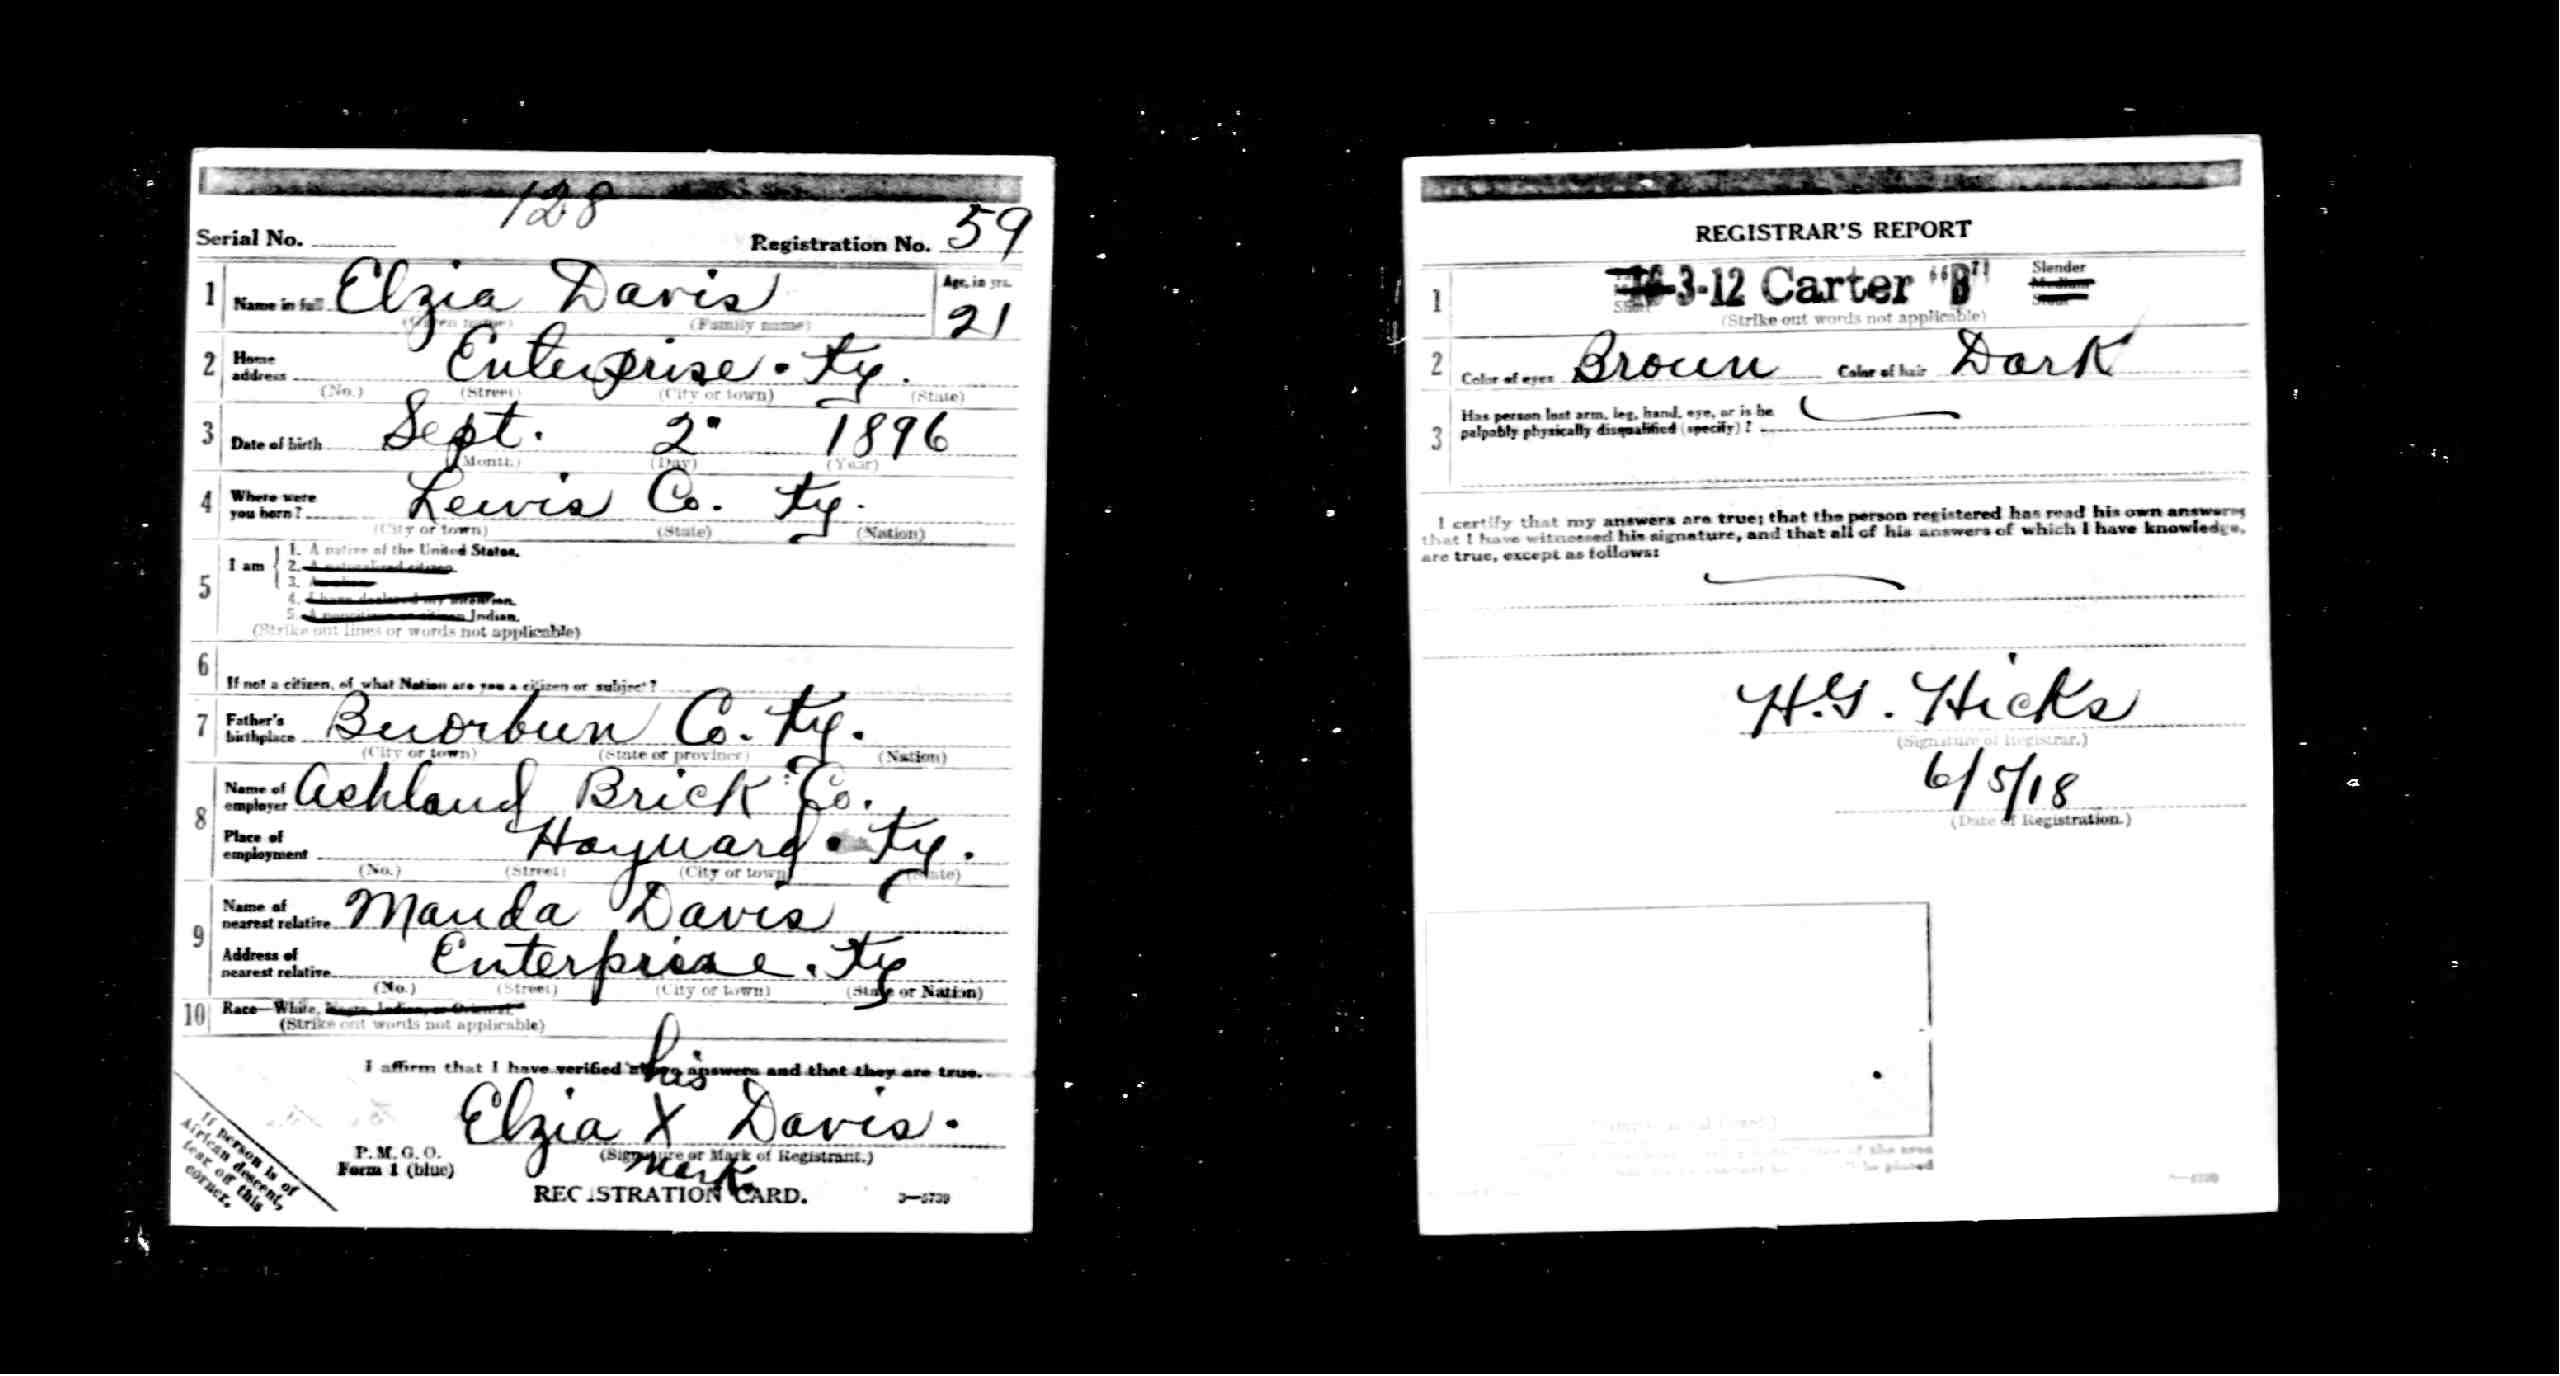 128
Serial No. Registration No. 59
1 Name in full Elzia Davis Age, in yrs. 21
(Given name) (Family name)
2 Home address Enterprise. Ky.
(No.) (Street) (City or town) (State)
3 Date of birth Sept. 2" 1896
(Month) (Day) (Year)
4 Where were you born? Lewis Co. Ky.
(City or town) (State) (Nation)
5 I am
1. A native of the United States.
2. A naturalized citizen.
3. An alien.
4. I have declared my intention.
5. A noncitizen or citizen Indian.
(Strike out lines or words not applicable)
6 If not a citizen, of what Nation are you a citizen or subject?
7 Father's birthplace Buorbun Co. Ky.
(City or town) (State or province) (Nation)
8 Name of employer Ashland Brick Co.
Place of employment Hayward. Ky.
(No.) (Street) (City or town) (State)
9 Name of nearest relative Manda Davis
Address of nearest relative Enterprise. Ky
(No.) (Street) (City or town) (State or Nation)
10 Race—White, Negro, Indian, or Oriental.
(Strike out words not applicable)
I affirm that I have verified above answers and that they are true.
his
Elzia X Davis.
(Signature or Mark of Registrant.)
mark.
P. M. G. O.
Form 1 (blue)
REGISTRATION CARD.
3—5739
If person is of
African descent,
tear off this
corner.
REGISTRAR'S REPORT
1 16-3-12 Carter "B" Slender
Medium
Stout
Short
(Strike out words not applicable)
2 Color of eyes Broun Color of hair Dark
3 Has person lost arm, leg, hand, eye, or is he
palpably physically disqualified (specify)?
I certify that my answers are true; that the person registered has read his own answers
that I have witnessed his signature, and that all of his answers of which I have knowledge,
are true, except as follows:
H.G. Hicks
(Signature of Registrar.)
6/5/18
(Date of Registration.)